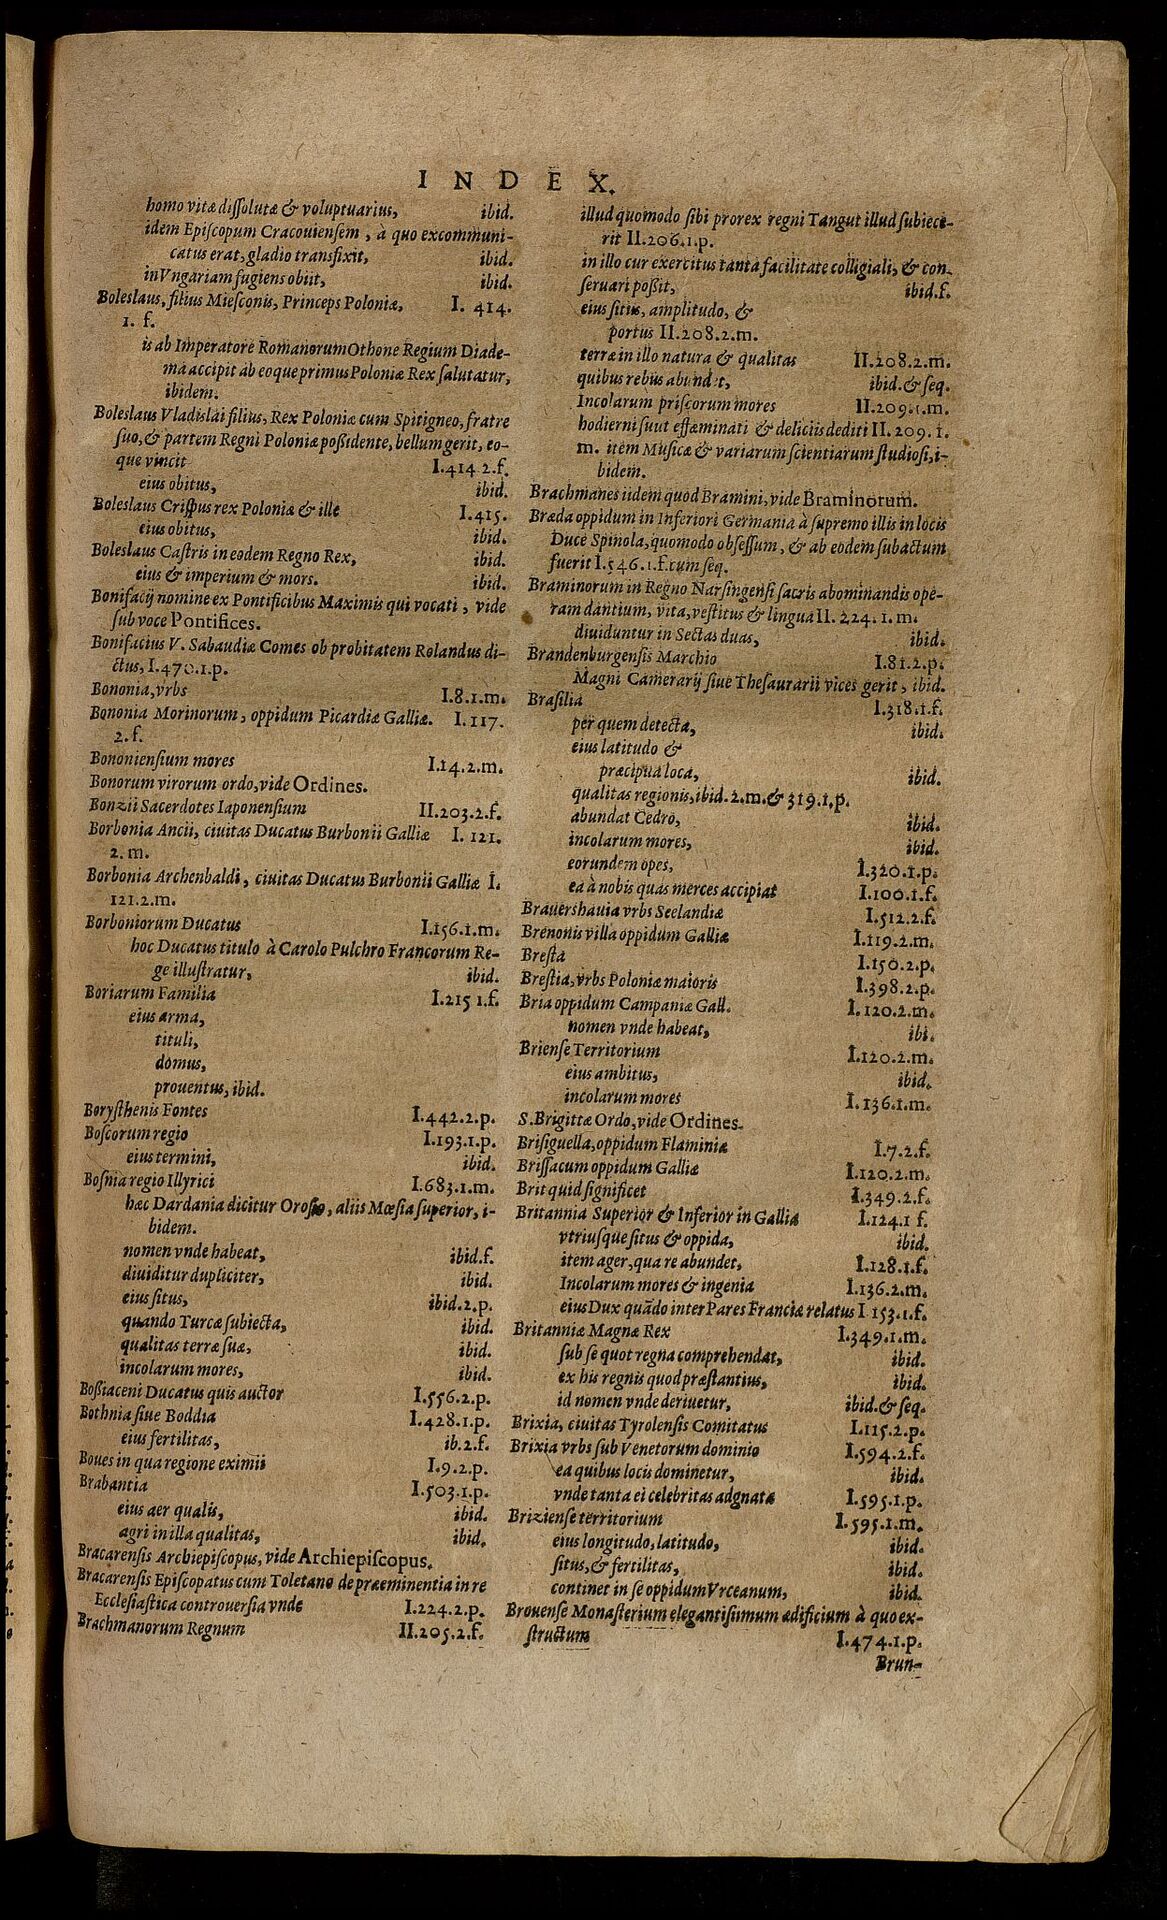 INDEX.
homo vitæ dissolutæ & voluptuarius, ibid.
idem Episcopum Cracouiensem, à quo excommuni-
catus erat, gladio transfixit, ibid.
in Vngariam fugiens obiit, ibid.
Boleslaus, filius Miesconis, Princeps Poloniæ, I. 414.
1. f.
is ab Imperatore Romanorum Othone Regium Diade-
ma accipit ab eoque primus Poloniæ Rex salutatur,
ibidem.
Boleslaus Vladislai filius, Rex Poloniæ cum Spitigneo, fratre
suo, & partem Regni Poloniæ poßidente, bellum gerit, eo-
que vincit I.414 2.f.
eius obitus, ibid.
Boleslaus Crispus rex Poloniæ & ille I.415.
eius obitus, ibid.
Boleslaus Castris in eodem Regno Rex, ibid.
eius & imperium & mors. ibid.
Bonifacij nomine ex Pontificibus Maximis qui vocati, vide
sub voce Pontifices.
Bonifacius V. Sabaudiæ Comes ob probitatem Rolandus di-
ctus, I.470.1.p.
Bononia, vrbs I.8.1.m.
Bononia Morinorum, oppidum Picardiæ Galliæ. I.117.
2.f.
Bononiensium mores I.14.2.m.
Bonorum virorum ordo, vide Ordines.
Bonzii Sacerdotes Iaponensium II.203.2.f.
Borbonia Ancii, ciuitas Ducatus Burbonii Galliæ I. 121.
2. m.
Borbonia Archenbaldi, ciuitas Ducatus Burbonii Galliæ I.
121.2.m.
Borboniorum Ducatus I.156.1.m.
hoc Ducatus titulo à Carolo Pulchro Francorum Re-
ge illustratur, ibid.
Boriarum Familia I.215 1.f.
eius arma,
tituli,
domus,
prouentus, ibid.
Borysthenis Fontes I.442.2.p.
Boscorum regio I.193.1.p.
eius termini, ibid.
Bosnia regio Illyrici I.683.1.m.
hæc Dardania dicitur Orosio, aliis Mœsia superior, i-
bidem.
nomen vnde habeat, ibid.f.
diuiditur dupliciter, ibid.
eius situs, ibid.2.p.
quando Turcæ subiecta, ibid.
qualitas terræ suæ, ibid.
incolarum mores, ibid.
Boßiaceni Ducatus quis auctor I.556.2.p.
Bothnia siue Boddia I.428.1.p.
eius fertilitas, ib.2.f.
Boues in qua regione eximii I.9.2.p.
Brabantia I.503.1.p.
eius aer qualis, ibid.
agri in illa qualitas, ibid.
Bracarensis Archiepiscopus, vide Archiepiscopus.
Bracarensis Episcopatus cum Toletano de præeminentia in re
Ecclesiastica controuersia vnde I.224.2.p.
Brachmanorum Regnum II.205.2.f.
illud quomodo sibi prorex regni Tangut illud subiece-
rit II.206.1.p.
in illo cur exercitus tanta facilitate colligiali, & con-
seruari poßit, ibid.f.
eius situs, amplitudo, &
portus II.208.2.m.
terræ in illo natura & qualitas II.208.2.m.
quibus rebus abundet, ibid.& seq.
Incolarum priscorum mores II.209.1.m.
hodierni suut effæminati & deliciis dediti II.209.1.
m. item Musicæ & variarum scientiarum studiosi, i-
bidem.
Brachmanes iidem quod Bramini, vide Braminorum.
Bræda oppidum in Inferiori Germania à supremo illis in locis
Duce Spinola, quomodo obsessum, & ab eodem subactum
fuerit I.546.1.f.cum seq.
Braminorum in Regno Narsingensi sacris abominandis ope-
ram dantium, vita, vestitus & lingua II. 224.1.m.
diuiduntur in Sectas duas, ibid.
Brandenburgensis Marchio I.81.2.p.
Magni Camerarij siue Thesaurarii vices gerit, ibid.
Brasilia I.318.1.f.
per quem detecta, ibid.
eius latitudo &
præcipua loca, ibid.
qualitas regionis, ibid.2.m.& 319.1.p.
abundat Cedro, ibid.
incolarum mores, ibid.
eorundem opes, I.320.1.p.
ea à nobis quas merces accipiat I.100.1.f.
Brauershauia vrbs Seelandiæ I.512.2.f.
Brenonis villa oppidum Galliæ I.119.2.m.
Bresta I.150.2.p.
Brestia, vrbs Poloniæ maioris I.398.2.p.
Bria oppidum Campaniæ Gall. I.120.2.m.
nomen vnde habeat, ibi.
Briense Territorium I.120.2.m.
eius ambitus, ibid.
incolarum mores I.136.1.m.
S. Brigittæ Ordo, vide Ordines.
Brisiguella, oppidum Flaminiæ I.7.2.f.
Brissacum oppidum Galliæ I.120.2.m.
Brit quid significet I.349.2.f.
Britannia Superior & Inferior in Gallia I.124.1 f.
vtriusque situs & oppida, ibid.
item ager, qua re abundet, I.128.1.f.
Incolarum mores & ingenia I.136.2.m.
eius Dux quãdo inter Pares Franciæ relatus I 153.1.f.
Britanniæ Magnæ Rex I.349.1.m.
sub se quot regna comprehendat, ibid.
ex his regnis quod præstantius, ibid.
id nomen vnde deriuetur, ibid.& seq.
Brixia, ciuitas Tyrolensis Comitatus I.115.2.p.
Brixia vrbs sub Venetorum dominio I.594.2.f.
ea quibus locis dominetur, ibid.
vnde tanta ei celebritas adgnata I.595.1.p.
Briziense territorium I.595.1.m.
eius longitudo, latitudo, ibid.
situs, & fertilitas, ibid.
continet in se oppidum Vrceanum, ibid.
Brouense Monasterium elegantisimum ædificium à quo ex-
structum I.474.1.p.
Brun-